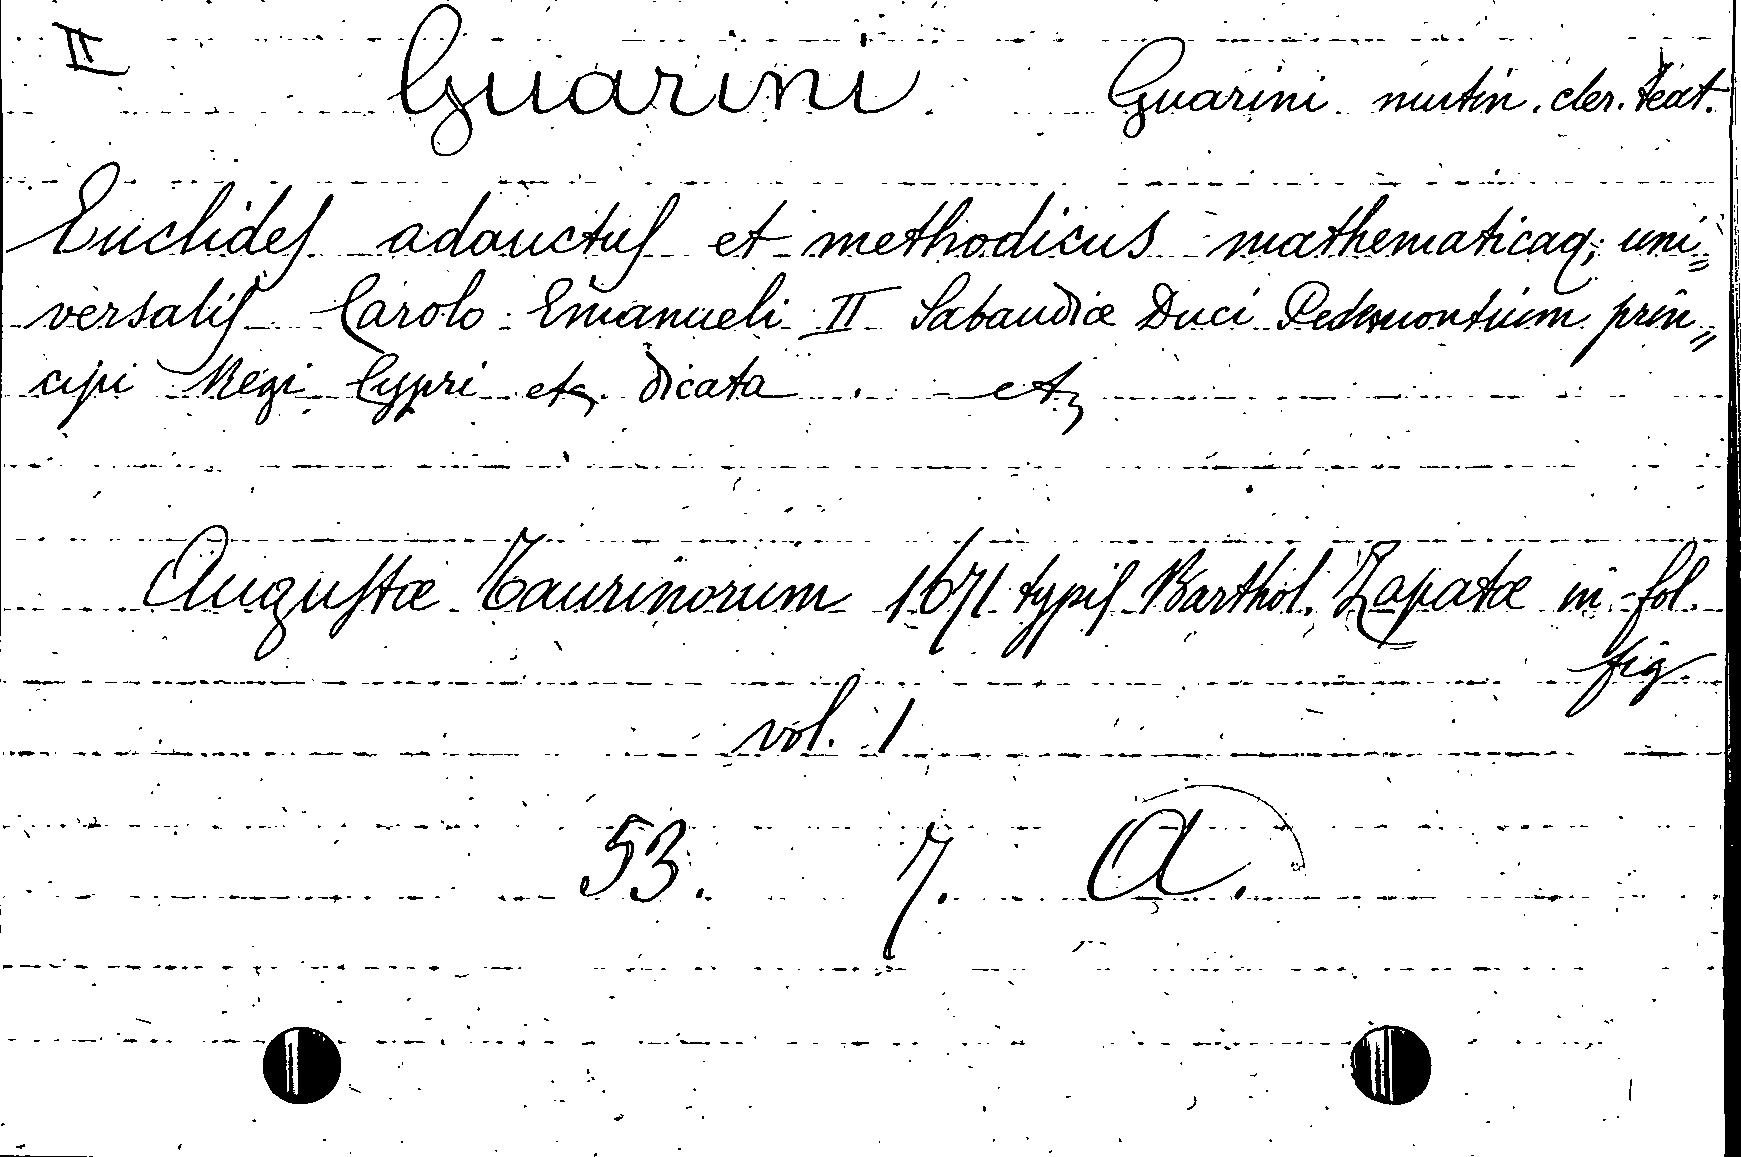 II Guarini Guarini mutin. cler. teat.
Euclides adauctus et methodicus mathematicaq; uni„
versalis Carolo Emanueli II Sabaudiæ Duci Pedemontium prin„
cipi Regi Cypri etc. dicata . etc
Augustæ Taurinorum 1671 typis Barthol. Zapatæ in fol.
fig.
vol. 1
53. 7. A.